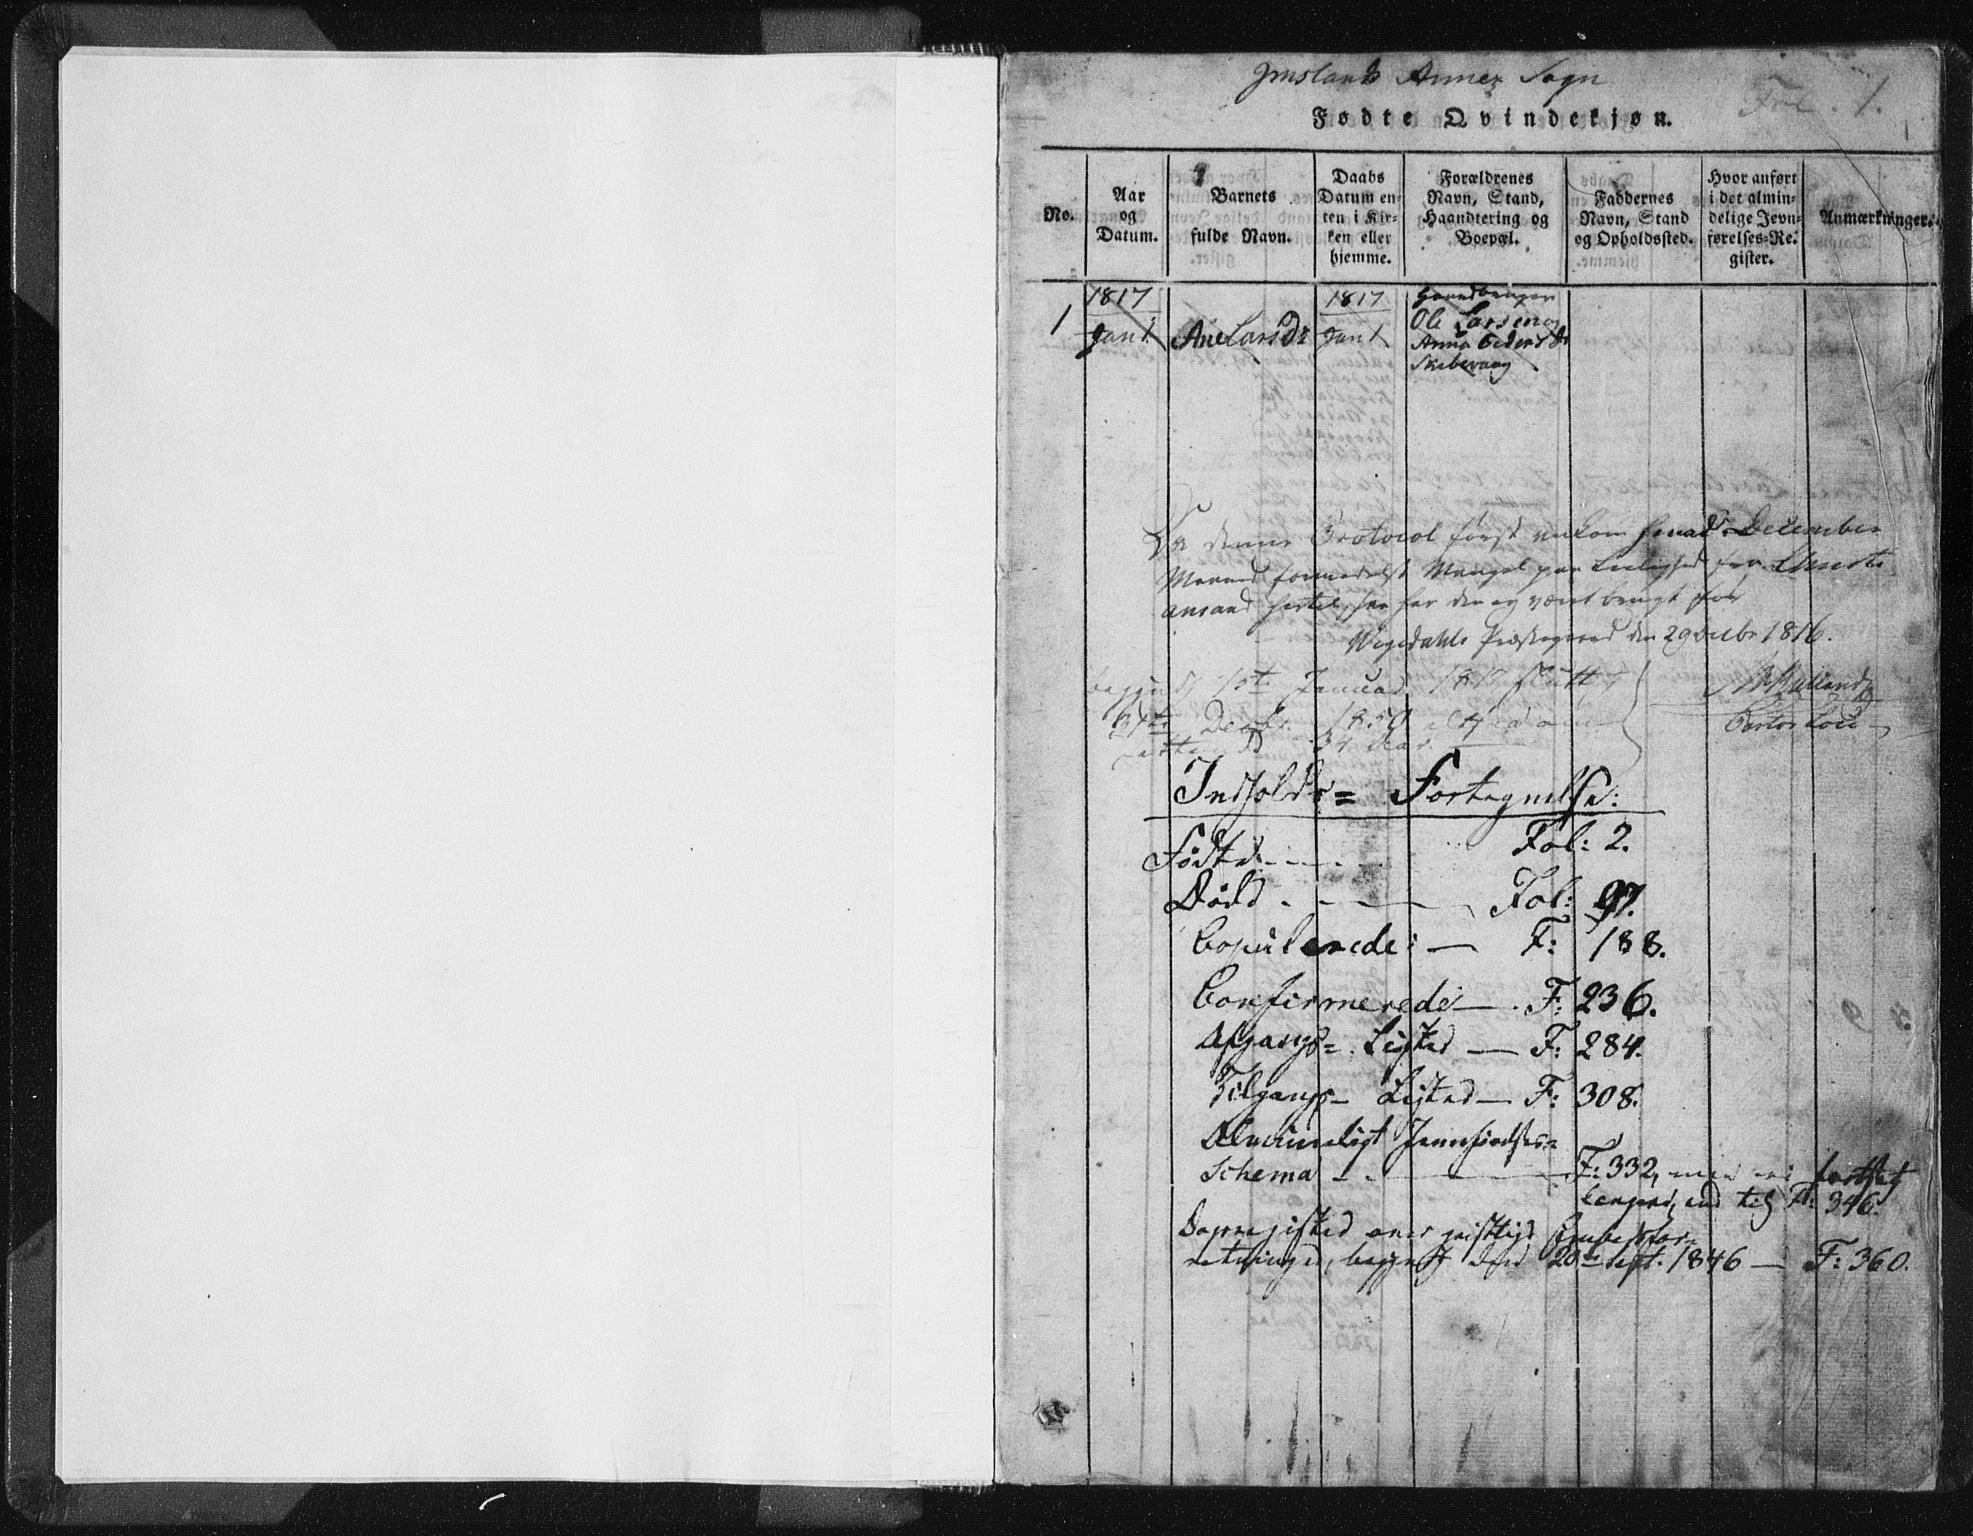 Imslands Annex Sogn
Fol. 1.
Fødte Qvindekjøn.
No.
Aar og Datum.
Barnets fulde Navn.
Daabs Datum enten i Kirken eller hjemme.
Forældrenes Navn, Stand, Haandtering og Boepæl.
Faddernes Navn, Stand og Opholdssted.
Hvor anført i det almindelige Jevnførelses-Register.
Anmærkninger.
1
1817
Jan 1
Ane Larsdr
1817
Jan 1
Gaardbruger
Ole Larsen og
Anna Pedersdr
Skibevaag
Da denne Protocol først ankom hertil December
Maaned formedelst Mangel paa Leilighed fra Christi
ansand hertil, saa har den ej været brugt før
Præstegaard den 29 Decbr 1816.
begyndt 1ste Januar 1817 sluttet
31te Decbr. 1850
34 Aar
Indholds= Fortegnelse:
Fødte Fol: 2.
Døde Fol: 97.
Copulerede: — F: 188.
Confirmerede — F: 236.
Afgangs=Listed — F: 284.
Tilgangs- Listed — F: 308.
Almindeligt Jevnførelses=
Schema — F: 332, men er fortsat
længere, end til F: 346.
Dagregisted over geistlige Embedsfor=
retninger, begyndt den 20de Sept. 1846 — F: 360.